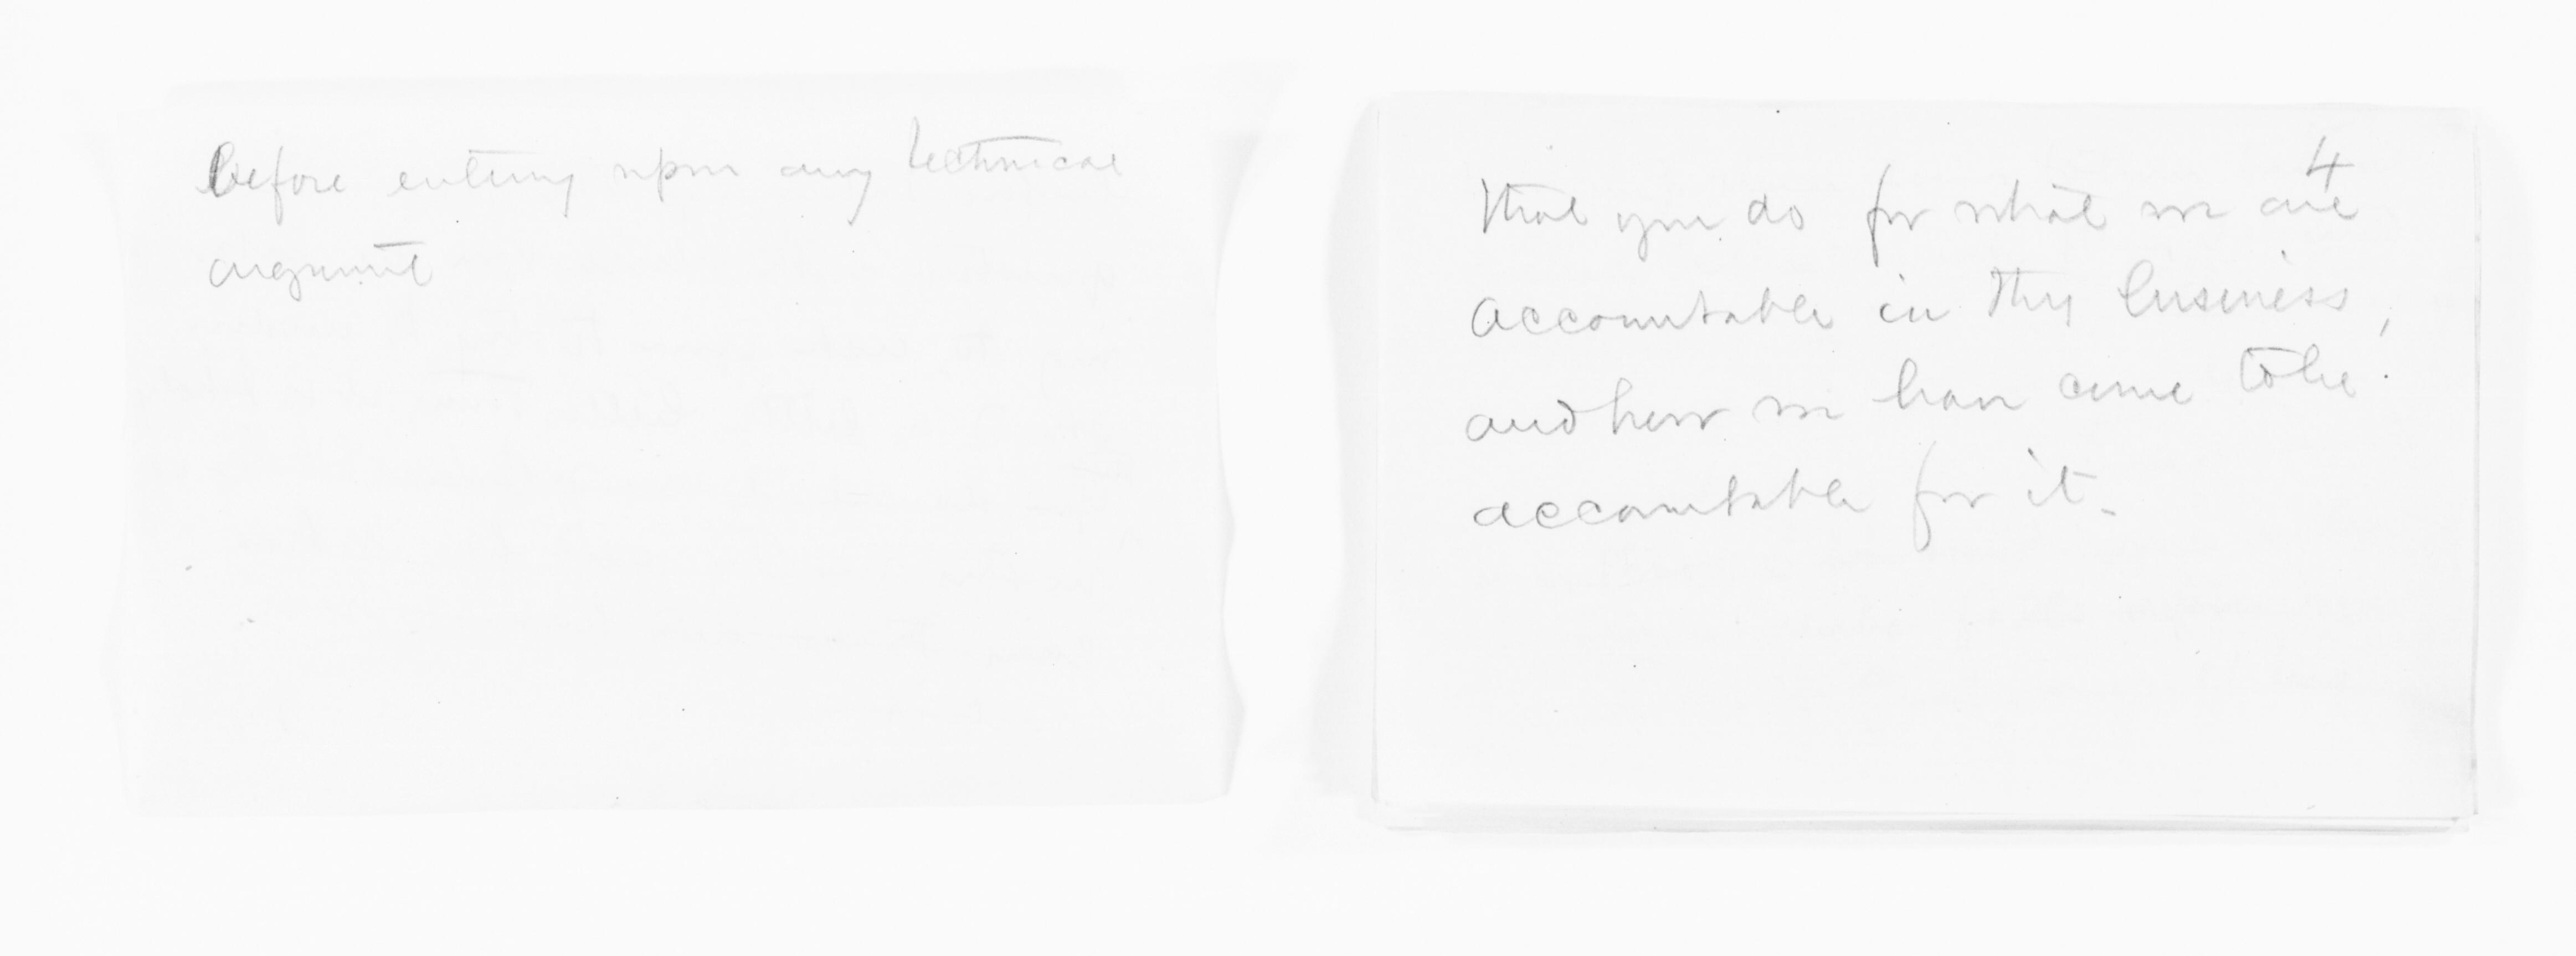 before entering upon any technical
argument
4
that you do for what we are
accountable in this business,
and how we have come to be
accountable for it.